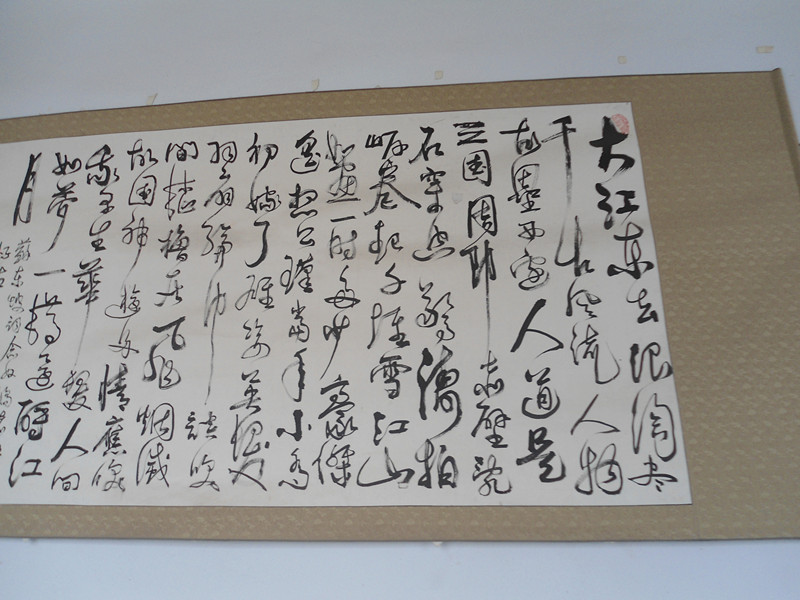 大江东去浪淘尽
千古风流人物
故壘西边人道是
三国周郎赤壁乱
石穿空惊濤拍
岸卷起千堆雪江山
如画一时多少豪傑
遥想公瑾当年小乔
初嫁了雄姿英發
羽扇纶巾谈笑
间樯橹灰飞烟滅
故国神遊多情應笑
我早生華髮人间
如梦一樽還酹江
月
蘇东坡词念奴嬌